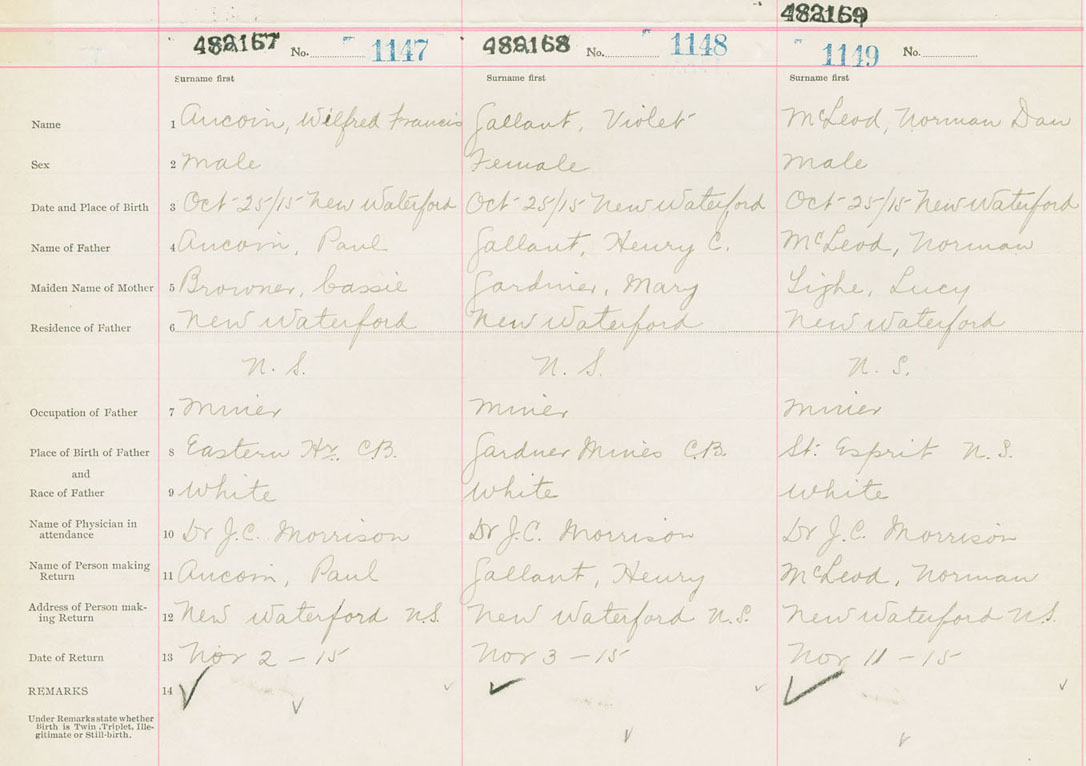 482169
482167 No. 1147 482168 No. 1148 1149 No.
Surname first Surname first Surname first
Name 1 Aucoin, Wilfred Francis Gallant, Violet McLeod, Norman Dan
Sex 2 Male Female Male
Date and Place of Birth 3 Oct 25/15 New Waterford Oct 25/15 New Waterford Oct 25/15 New Waterford
Name of Father 4 Aucoin, Paul Gallant, Henry C. McLeod, Norman
Maiden Name of Mother 5 Browner, Cassie Gardiner, Mary Lighe, Lucy
Residence of Father 6 New Waterford New Waterford New Waterford
N. S. N. S. N. S.
Occupation of Father 7 Miner Miner Miner
Place of Birth of Father 8 Eastern Hr. C.B. Gardner Mines C.B. St. Esprit N. S.
and
Race of Father 9 White White White
Name of Physician in
attendance 10 Dr J.C. Morrison Dr J.C. Morrison Dr J.C. Morrison
Name of Person making
Return 11 Aucoin, Paul Gallant, Henry McLeod, Norman
Address of Person mak-
ing Return 12 New Waterford N.S. New Waterford N.S. New Waterford N.S.
Date of Return 13 Nov 2 - 15 Nov 3 - 15 Nov 11 - 15
REMARKS 14
Under Remarks state whether
Birth is Twin, Triplet, Ille-
gitimate or Still-birth.